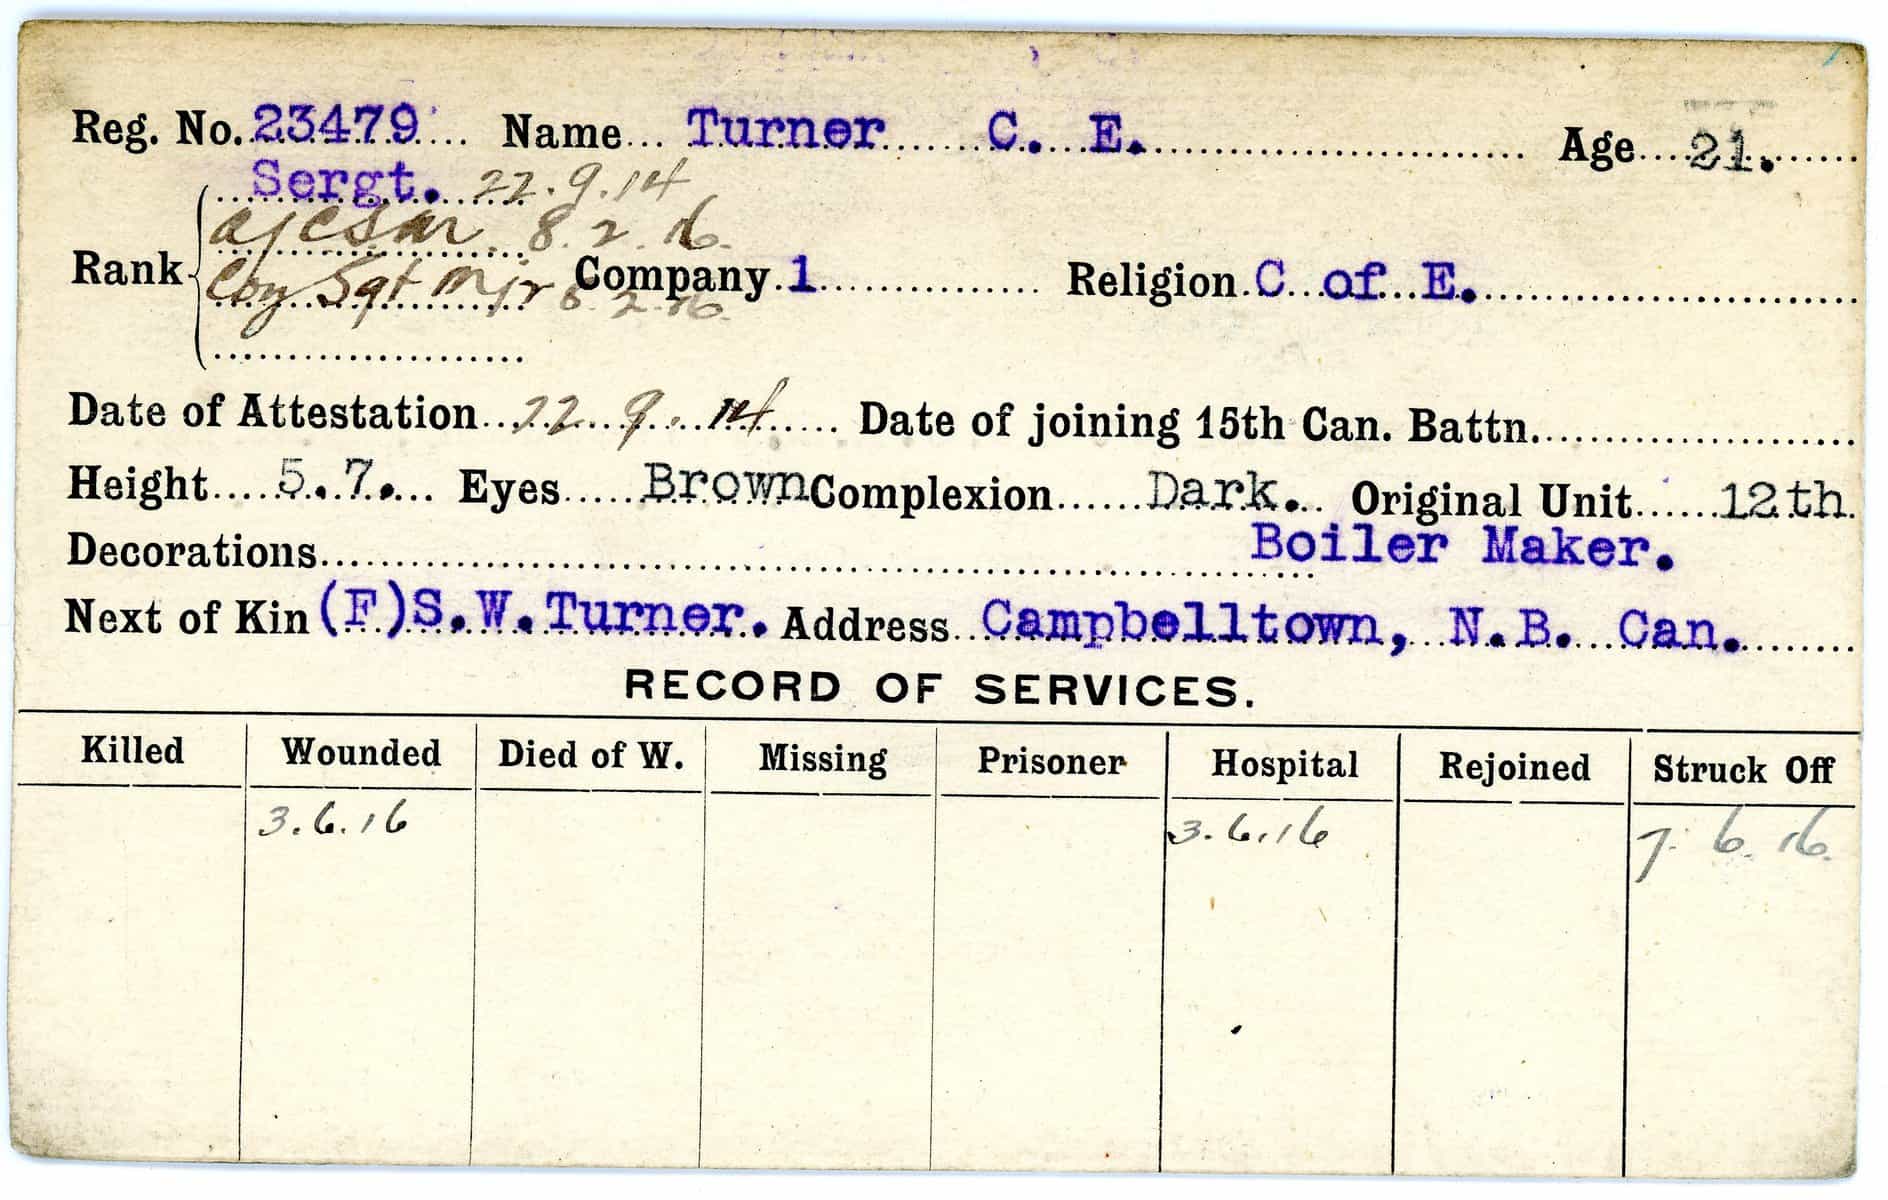 Reg. No. 23479 Name Turner C. E. Age 21.
Sergt. 22.9.14
a/CSM. 8.2.16.
Rank Coy Sgt Mjr 8.2.16. Company 1 Religion C of E.
Date of Attestation 22.9.14 Date of joining 15th Can. Battn.
Height 5.7. Eyes Brown Complexion Dark. Original Unit 12th.
Decorations Boiler Maker.
Next of Kin (F)S.W.Turner. Address Campbelltown, N.B. Can.
RECORD OF SERVICES.
Killed Wounded Died of W. Missing Prisoner Hospital Rejoined Struck Off
3.6.16 3.6.16 7.6.16.